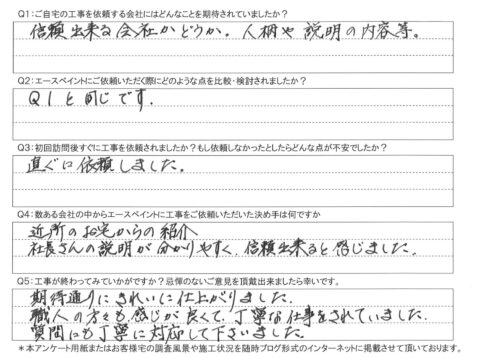 Q1：ご自宅の工事を依頼する会社にはどんなことを期待されていましたか？
信頼出来る会社かどうか。人柄や説明の内容等。
Q2：エースペイントにご依頼いただく際にどのような点を比較・検討されましたか？
Q1と同じです。
Q3：初回訪問後すぐに工事を依頼されましたか？もし依頼しなかったとしたらどんな点が不安でしたか？
直ぐに依頼しました。
Q4：数ある会社の中からエースペイントに工事をご依頼いただいた決め手は何ですか
近所のお宅からの紹介
社長さんの説明が分かりやすく、信頼出来ると感じました。
Q5：工事が終わってみていかがですか？忌憚のないご意見を頂戴出来ましたら幸いです。
期待通りにきれいに仕上がりました。
職人の方々も感じが良くて、丁寧な仕事をされていました。
質問にも丁寧に対応して下さいました。
＊本アンケート用紙またはお客様宅の調査風景や施工状況を随時ブログ形式のインターネットに掲載させて頂いております。